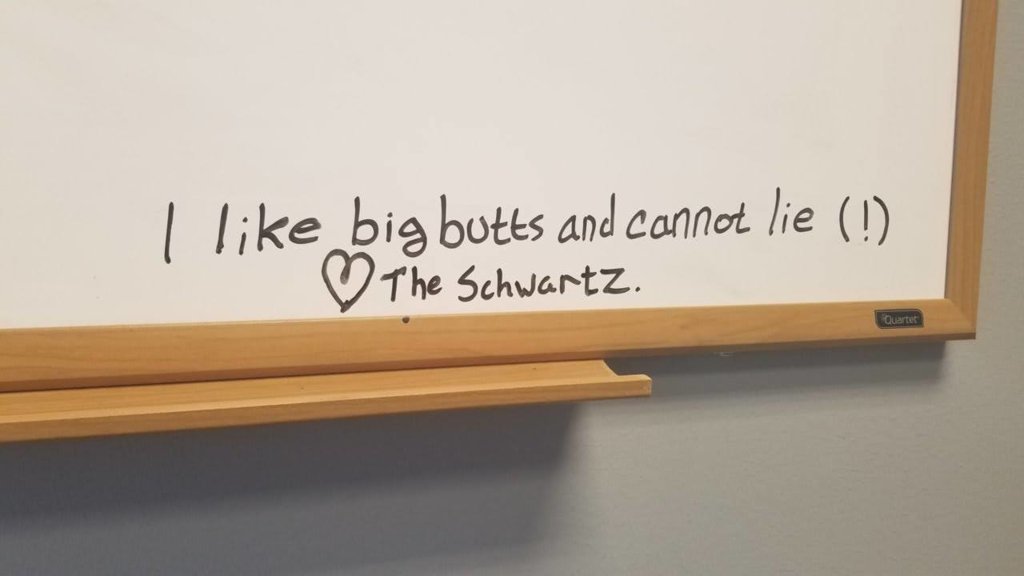 I like big butts and cannot lie (!)
♡ The Schwartz.
Quartet